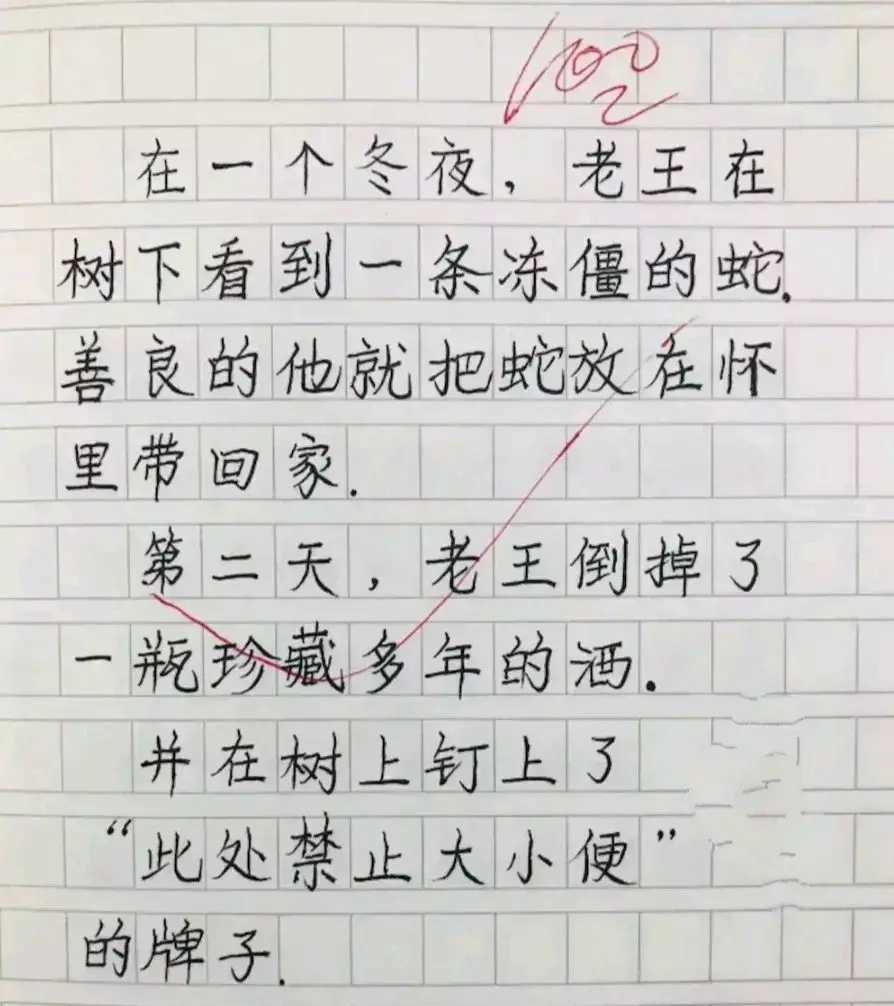 100
在一个冬夜，老王在
树下看到一条冻僵的蛇.
善良的他就把蛇放在怀
里带回家.
第二天，老王倒掉了
一瓶珍藏多年的酒.
并在树上钉上了
“此处禁止大小便”
的牌子.